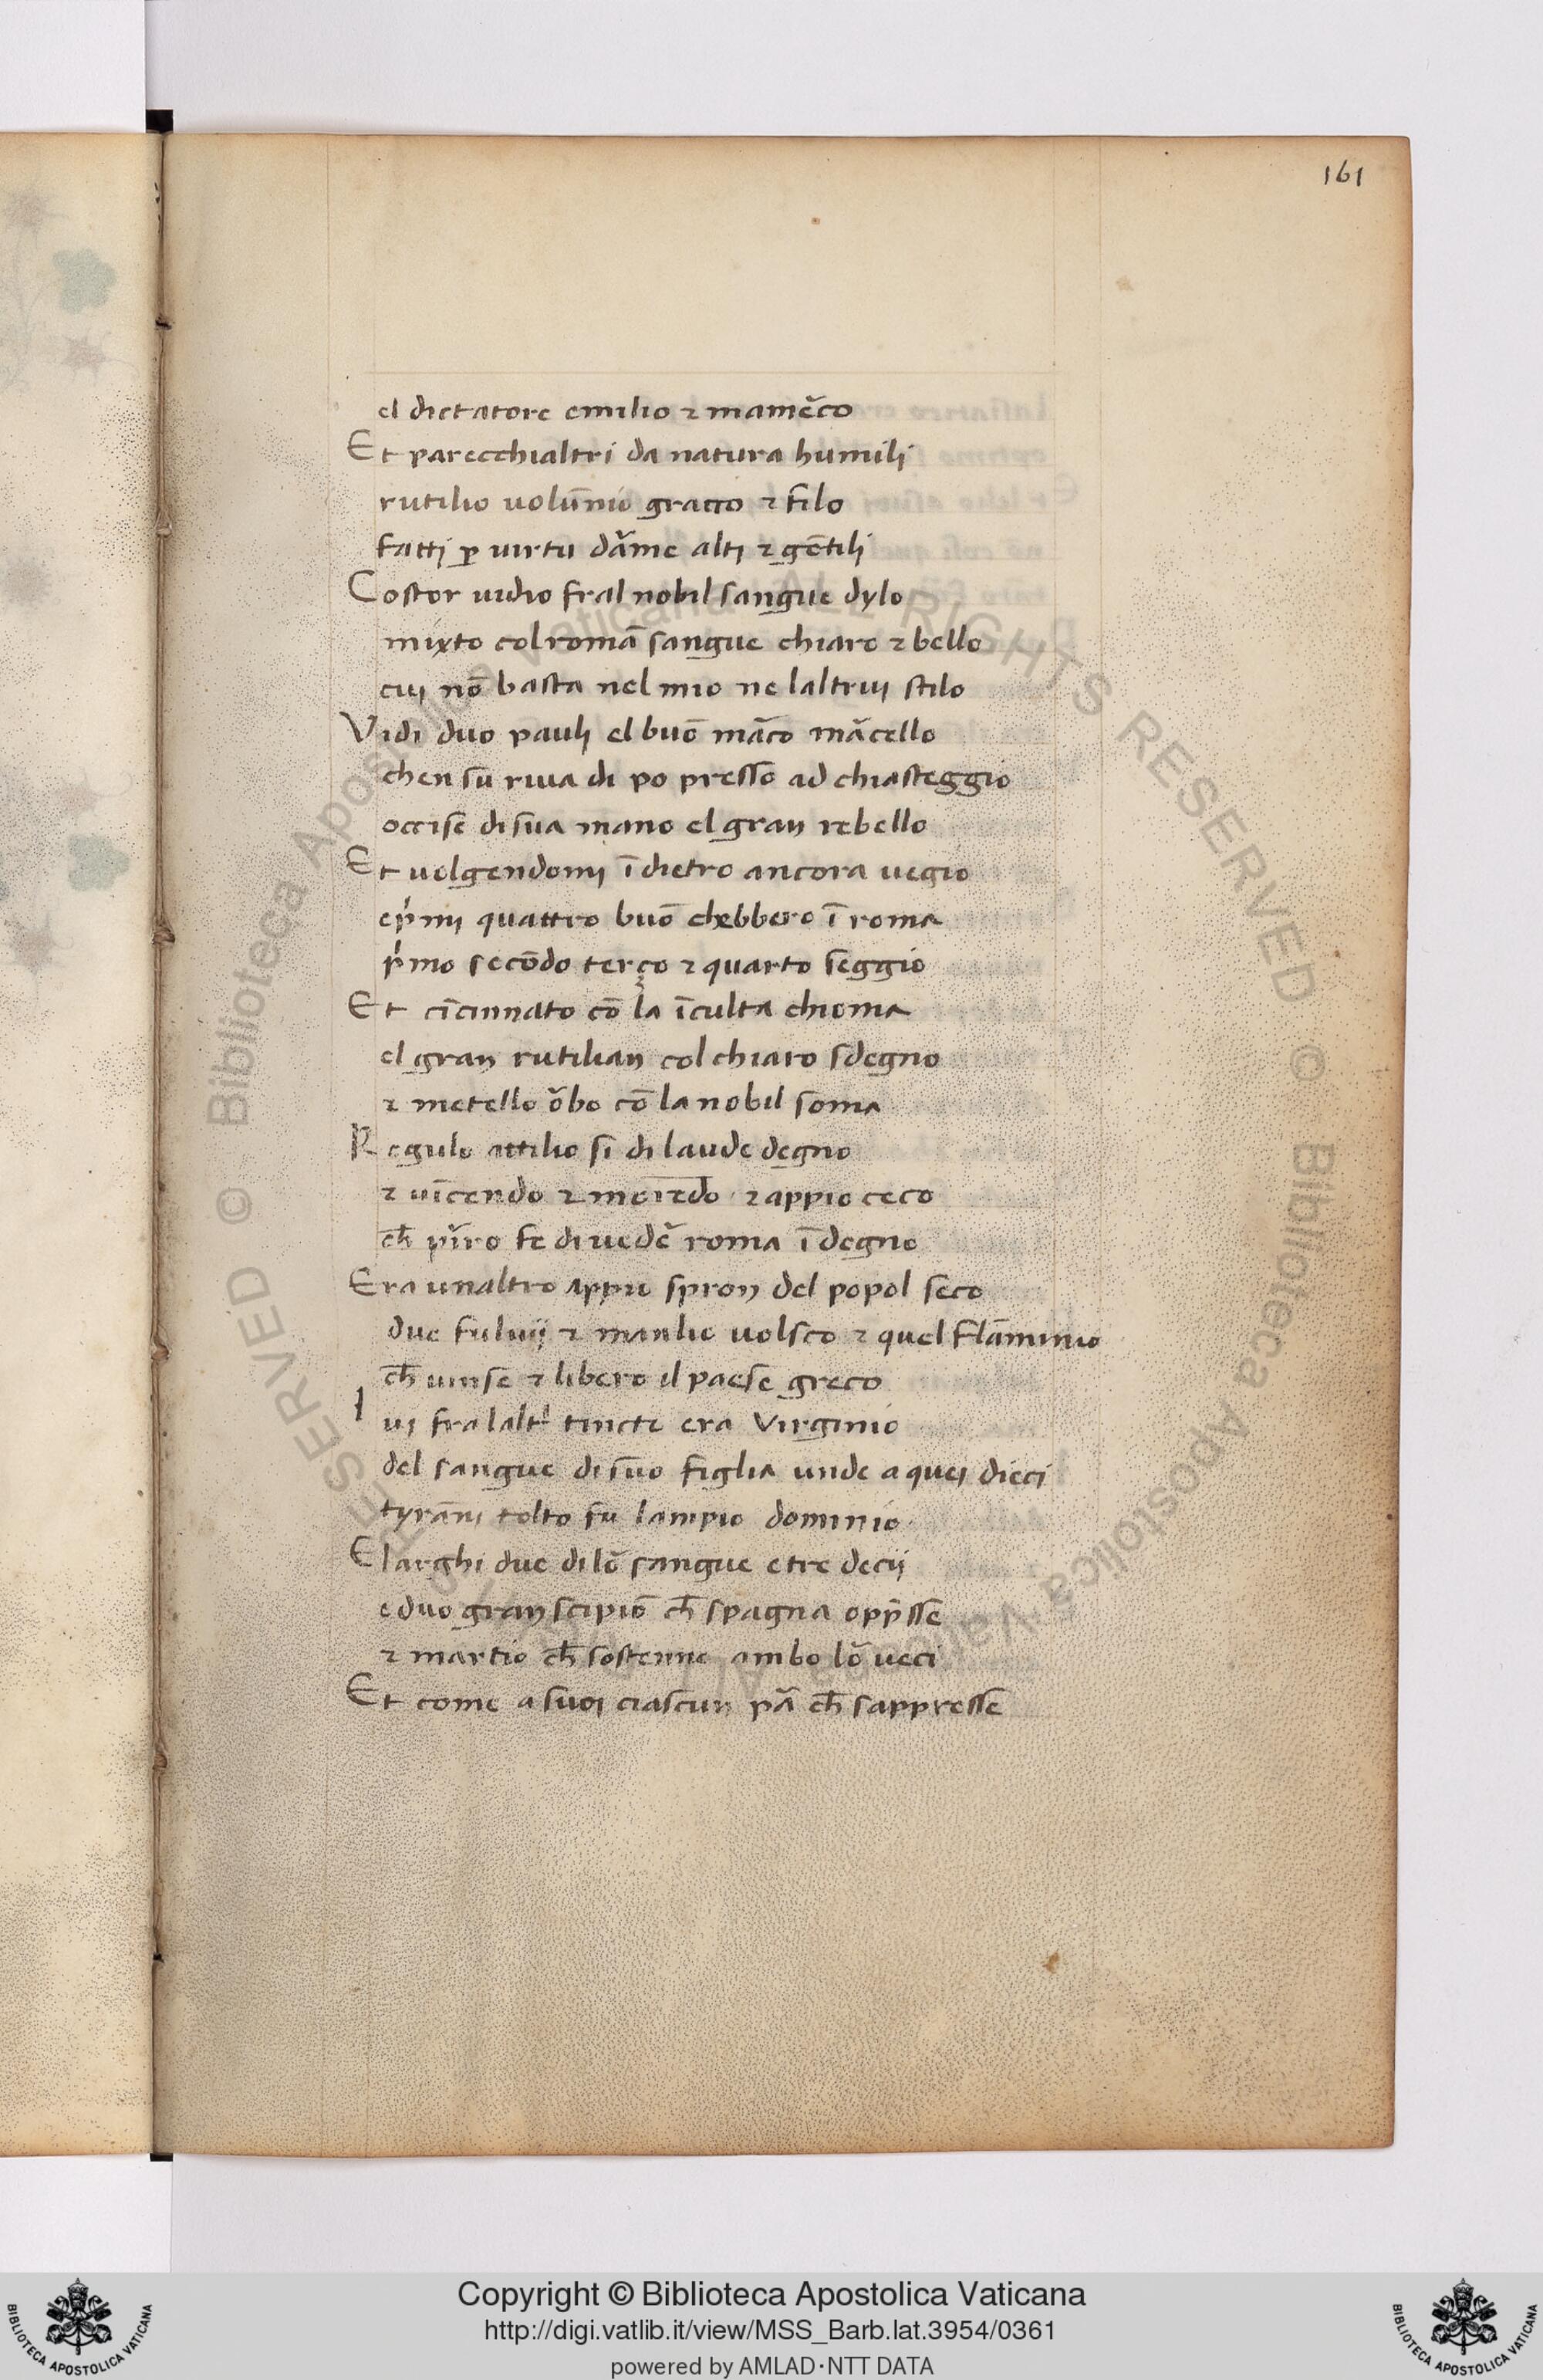 161
el dictatore emilio ⁊ mamĕco
Et parecchialtri da natura humili
rutilio uolūnio gracco ⁊ filo
fatti ꝑ uirtu dăme alti ⁊ gētili
Costor uidio fral nobil sangue dylo
mixto col romā sangue chiaro ⁊ bello
cui nō basta nel mio ne laltrui stilo
Vidi duo pauli el buō măco măcello
chen su riua di po presso ad chiasteggio
occise di sua mano el gran rebello
Et uolgendomi ī dietro ancora uegio
epͥmi quattro buō chebbero ī roma
pͥmo secōdo terço ⁊ quarto seggio
Et cīcinnato cō la īculta chioma
el gran rutilian col chiaro sdegno
⁊ metello ŏbo cō la nobil soma
Regulo attilio si di laude degno
⁊ uīcendo ⁊ moriēdo ⁊ appio ceco
ch̄ pirro fe di uedĕ roma ī degno
Era unaltro appio spron del popol seco
due fuluij ⁊ manlio uolsco ⁊ quel flāminio
ch̄ uinse ⁊ libero il paese greco
Iui fra laltͥ tincto era Virginio
del sangue di suo figlia unde a quei dieci
tyrāni tolto fu lampio dominio
El arghi due di lŏ sangue e tre decij
e duo gran scipiō ch̄ spagna opp̄sse
⁊ martio ch̄ sostenne ambo lŏ ueci
Et come a suoi ciascun pă ch̄ sappresse
© Biblioteca Apostolica Vaticana ALL RIGHTS RESERVED © Biblioteca Apostolica Vaticana ALL RIGHTS RESERVED
Copyright © Biblioteca Apostolica Vaticana
http://digi.vatlib.it/view/MSS_Barb.lat.3954/0361
powered by AMLAD·NTT DATA
BIBLIOTECA APOSTOLICA VATICANA
BIBLIOTECA APOSTOLICA VATICANA